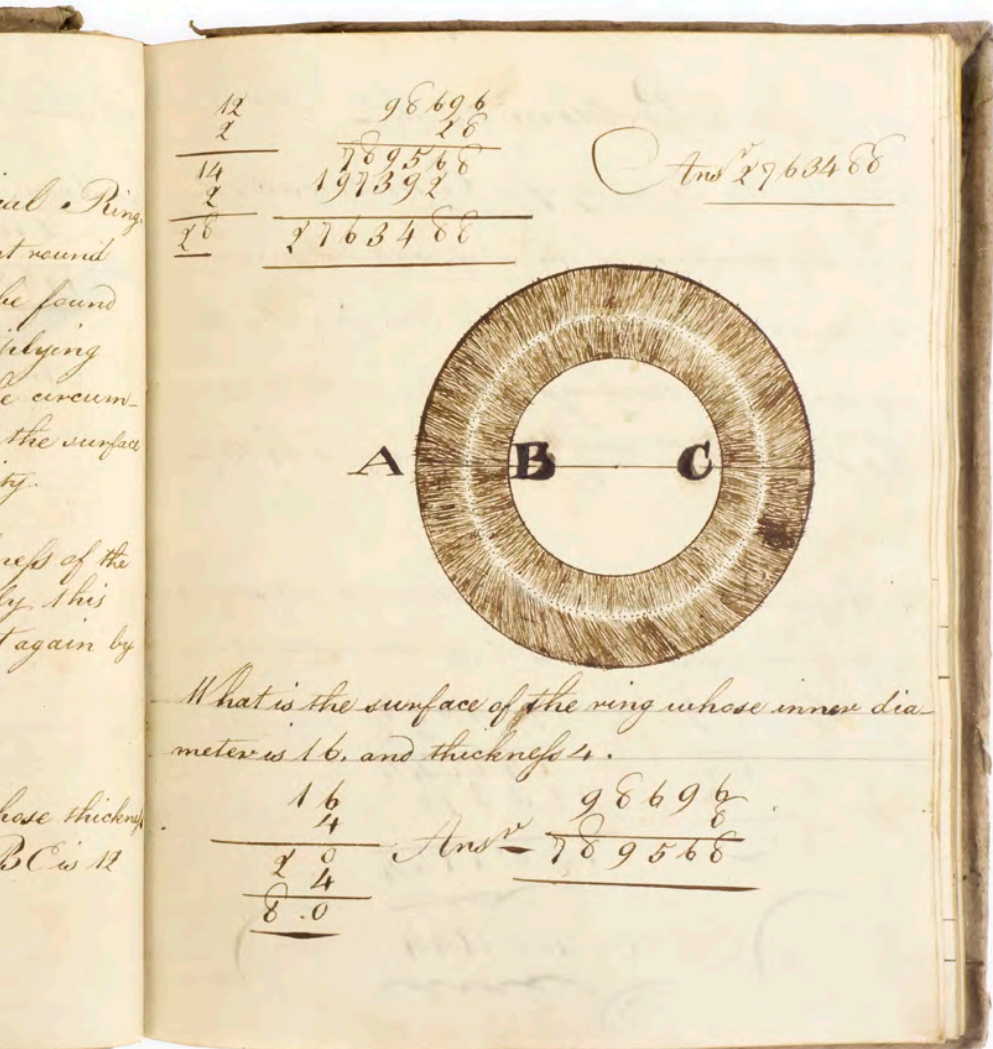 cal Ring,
t round
be found
iplying
e circum-
the surface
ty.
neſs of the
ly this
t again by
hose thickneſs
BC is 12
12 98696
2 28
14 789568
2 197392
28 2763488
Ansr 2763488
A B C
What is the surface of the ring whose inner dia-
meter is 16, and thickneſs 4.
16 98696
4 8
20 Ansr 789568
4
8.0